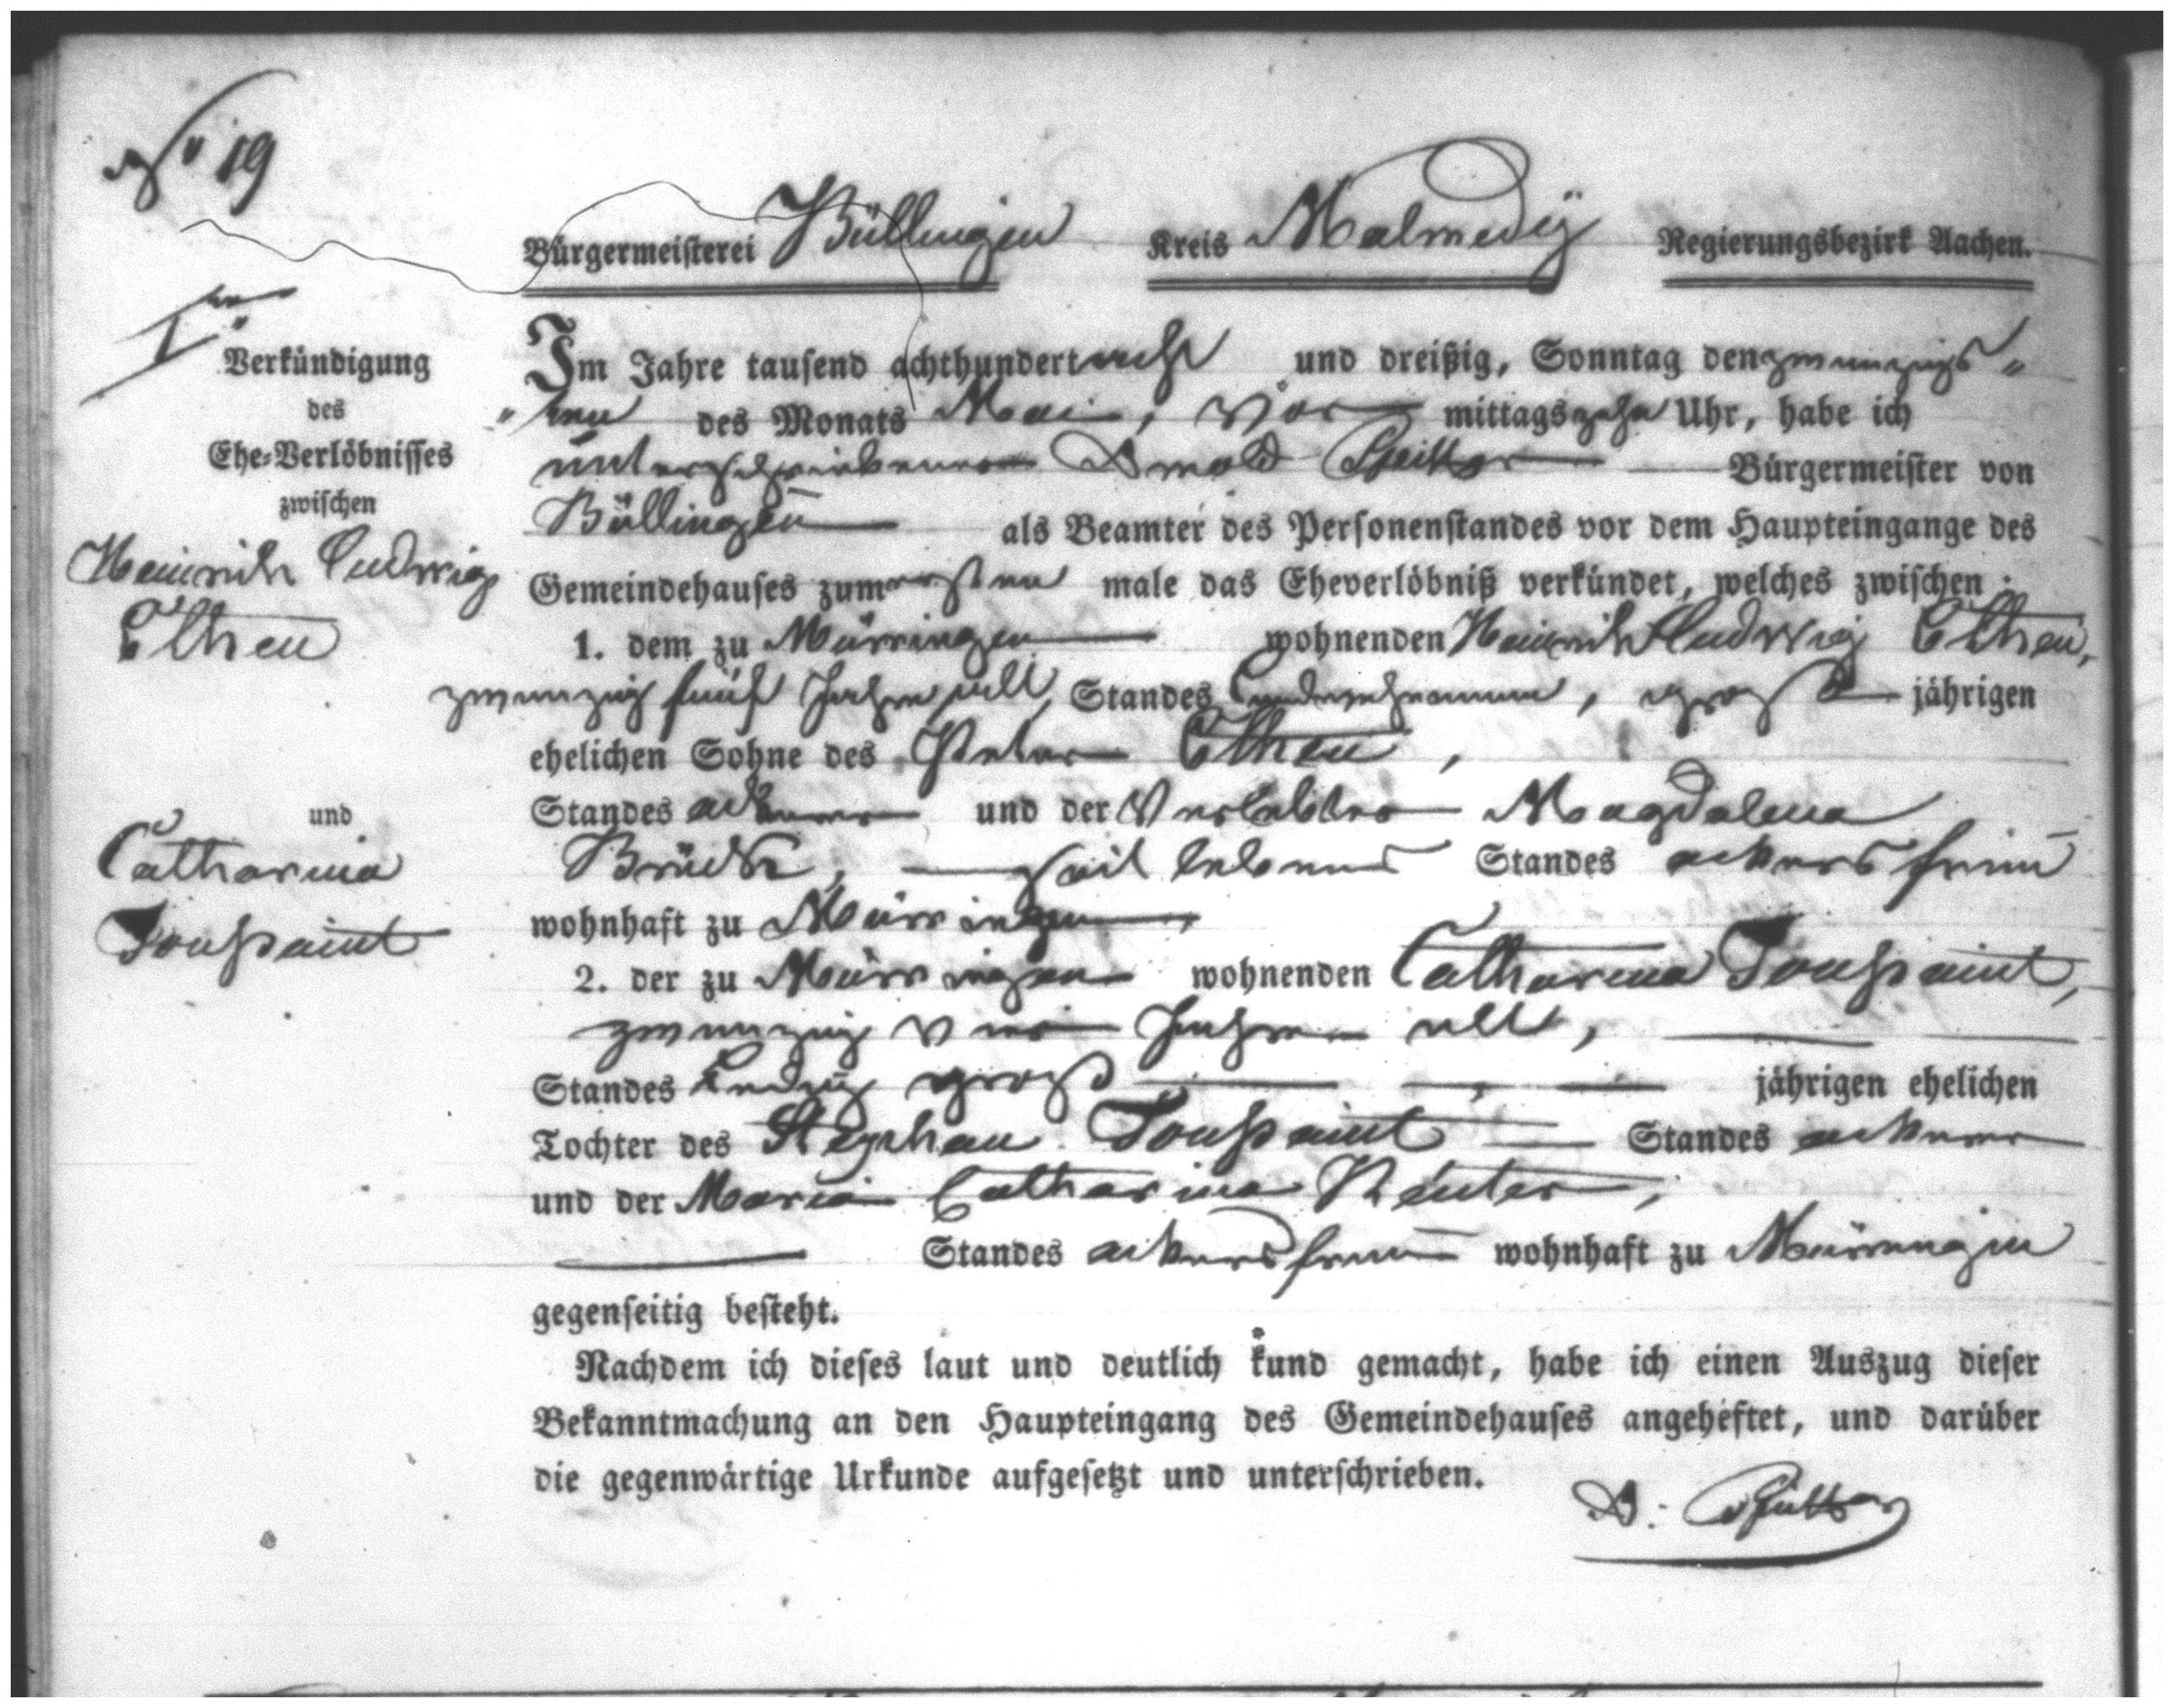 No 19
Bürgermeisterei Büllingen Kreis Malmedÿ Regierungsbezirk Aachen.
Iten
Verkündigung
des
Ehe-Verlöbnisses
zwischen
Heinrich Ludwig
Ethen
und
Catharina
Toußaint
Im Jahre tausend achthundert acht und dreißig, Sonntag den zwanzigs„
„ten des Monats Mai, Vor mittags zehn Uhr, habe ich
unterschriebener Bürgermeister von
Büllingen als Beamter des Personenstandes vor dem Haupteingange des
Gemeindehauses zum ersten male das Eheverlöbniß verkündet, welches zwischen:
1. dem zu Mürringen wohnenden Heinrich Ludwig Ethen,
zwanzig fünf Jahre alt, Standes Landwehrmann, groß jährigen
ehelichen Sohne des Peter Ethen,
Standes ackerer und der Verlebter Magdalena
Brück, zeit lebens Standes ackersfrau
wohnhaft zu Mürringen,
2. der zu Mürringen wohnenden Catharina Toußaint,
zwanzig vier Jahre alt,
Standes Ledig groß jährigen ehelichen
Tochter des Stephan Toußaint Standes ackerer
und der Maria Catharina Reuter,
Standes ackersfrau wohnhaft zu Mürringen
gegenseitig besteht.
Nachdem ich dieses laut und deutlich kund gemacht, habe ich einen Auszug dieser
Bekanntmachung an den Haupteingang des Gemeindehauses angeheftet, und darüber
die gegenwärtige Urkunde aufgesetzt und unterschrieben.